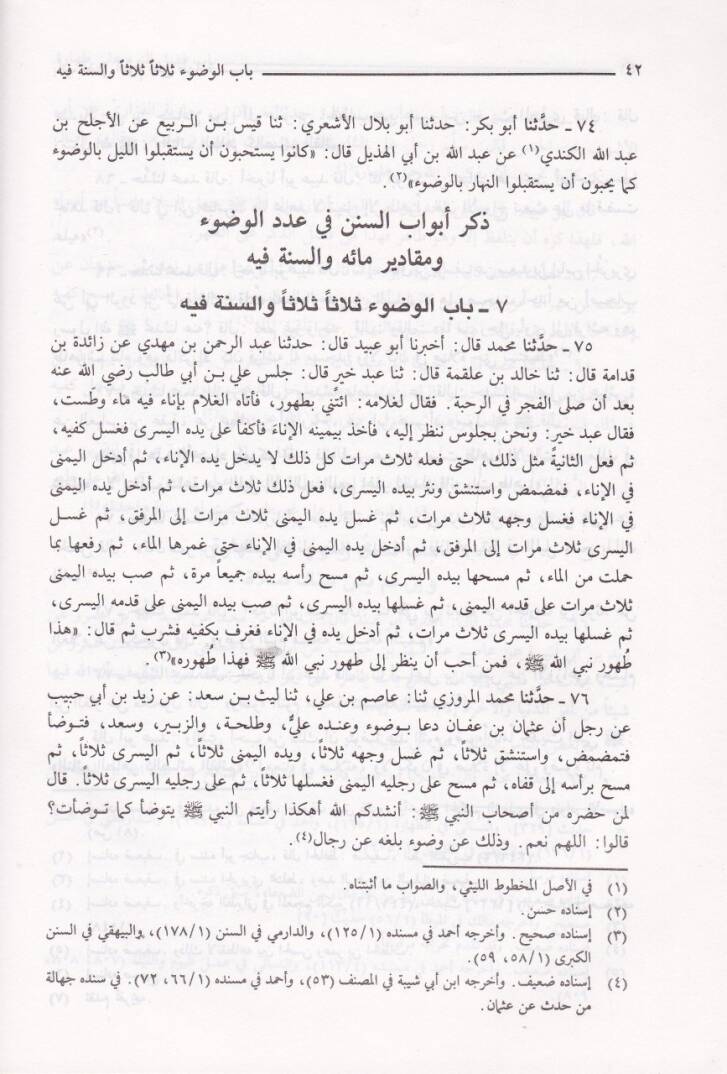 ٤٢ باب الوضوء ثلاثاً ثلاثاً والسنة فيه
٧٤ ـ حدَّثنا أبو بكر: حدثنا أبو بلال الأشعري: ثنا قيس بـن الربيع عن الأجلح بن
عبد الله الكندي(١) عن عبد الله بن أبي الهذيل قال: «كانوا يستحبون أن يستقبلوا الليل بالوضوء
كما يحبون أن يستقبلوا النهار بالوضوء»(٢).
ذكر أبواب السنن في عدد الوضوء
ومقادير مائه والسنة فيه
٧ ـ باب الوضوء ثلاثاً ثلاثاً والسنة فيه
٧٥ ـ حدَّثنا محمد قال: أخبرنا أبو عبيد قال: حدثنا عبد الرحمن بن مهدي عن زائدة بن
قدامة قال: ثنا خالد بن علقمة قال: ثنا عبد خير قال: جلس علي بـن أبي طالب رضي الله عنه
بعد أن صلى الفجر في الرحبة. فقال لغلامه: ائتْني بطهور، فأتاه الغلام بإناء فيه ماء وطست،
فقال عبد خير: ونحن بجلوس ننظر إليه، فأخذ بيمينه الإناءَ فأكفأ على يده اليسرى فغسل كفيه،
ثم فعل الثانيةَ مثل ذلك، حتى فعله ثلاث مرات كل ذلك لا يدخل يده الإناء، ثم أدخل اليمنى
في الإناء، فمضمض واستنشق ونثر بيده اليسرى، فعل ذلك ثلاث مرات، ثم أدخل يده اليمنى
في الإناء فغسل وجهه ثلاث مرات، ثم غسل يده اليمنى ثلاث مرات إلى المرفق، ثم غسـل
اليسرى ثلاث مرات إلى المرفق، ثم أدخل يده اليمنى في الإناء حتى غمرها الماء، ثم رفعها بما
حملت من الماء، ثم مسحها بيده اليسرى، ثم مسح رأسه بيده جميعاً مرة، ثم صب بيده اليمنى
ثلاث مرات على قدمه اليمنى، ثم غسلها بيده اليسرى، ثم صب بيده اليمنى على قدمه اليسرى،
ثم غسلها بيده اليسرى ثلاث مرات، ثم أدخل يده في الإناء فغرف بكفيه فشرب ثم قال: «هذا
طُهور نبي الله ﷺ، فمن أحب أن ينظر إلى طهور نبي الله ﷺ فهذا طُهوره»(٣).
٧٦ ـ حدَّثنا محمد المروزي ثنا: عاصم بن علي، ثنا ليث بـن سعد: عن زيد بن أبي حبيب
عن رجل أن عثمان بن عفـان دعا بـوضوء وعنـده عليٌّ، وطلحـة، والزبـير، وسعد، فتـوضأ
فتمضمض، واستنشق ثلاثاً، ثم غسل وجهه ثلاثاً، ويده اليمنى ثلاثاً، ثم اليسرى ثلاثاً، ثم
مسح برأسه إلى قفاه، ثم مسح على رجليه اليمنى فغسلها ثلاثاً، ثم على رجليه اليسرى ثلاثاً. قال
لمن حضره من أصحاب النبي ﷺ: أنشدكم الله أهكذا رأيتم النبي ﷺ يتوضأ كما تـوضأت؟
قالوا: اللهم نعم. وذلك عن وضوء بلغه عن رجال(٤).
(١) في الأصل المخطوط الليثي، والصواب ما أثبتناه.
(٢) إسناده حسن.
(٣) إسناده صحيح. وأخرجه أحمد في مسنده (١٢٥/١)، والدارمي في السنن (١٧٨/١)، والبيهقي في السنن
الكبرى (٥٨/١، ٥٩).
(٤) إسناده ضعيف. وأخرجه ابن أبي شيبة في المصنف (٥٣)، وأحمد في مسنده (٦٦/١، ٧٢). في سنده جهالة
من حدث عن عثمان.